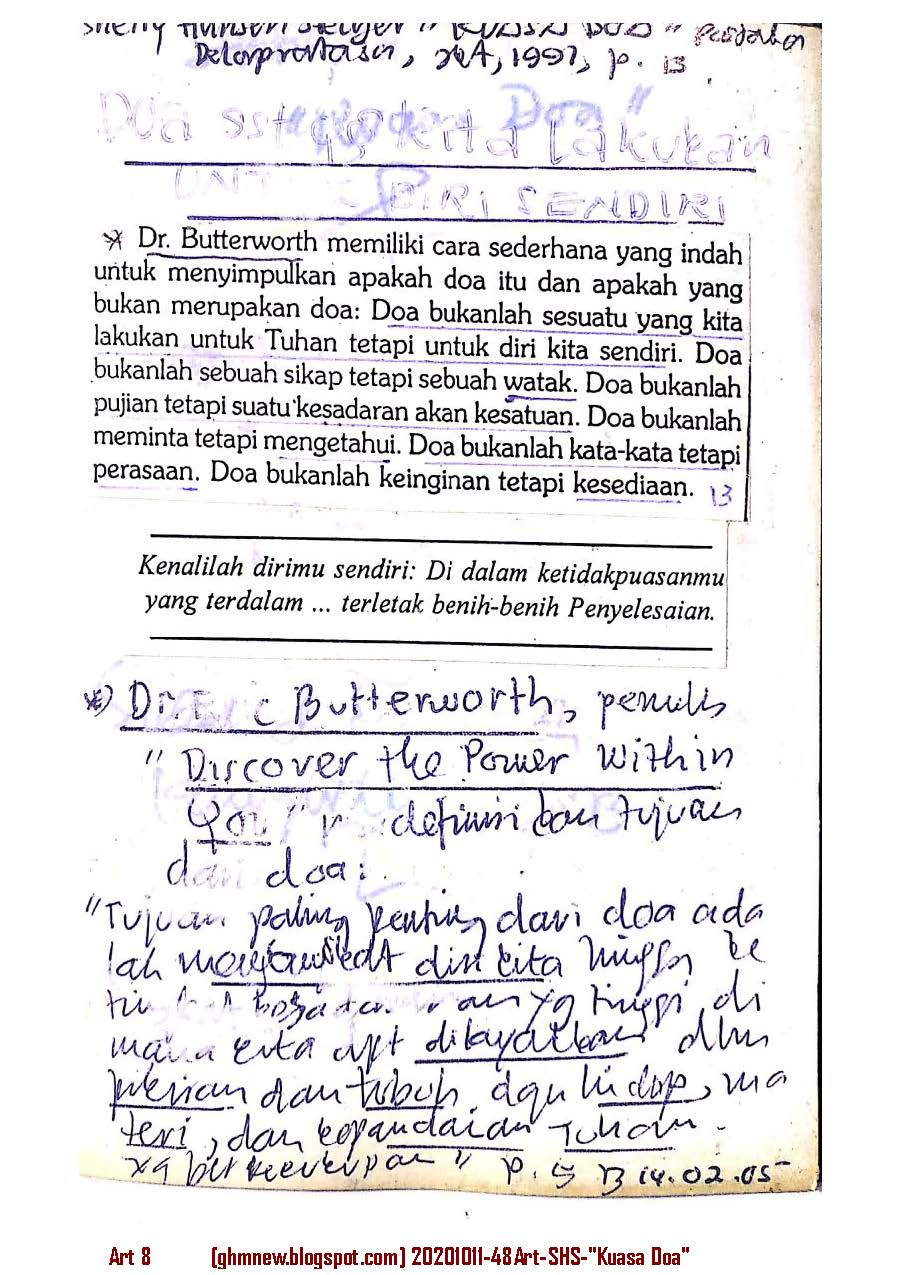 "KUASA DOA"
Delapratasa, JKA, 1997, p. 13
Doa sst yg kita lakukan
UNTUK DIRI SENDIRI
Dr. Butterworth memiliki cara sederhana yang indah
untuk menyimpulkan apakah doa itu dan apakah yang
bukan merupakan doa: Doa bukanlah sesuatu yang kita
lakukan untuk Tuhan tetapi untuk diri kita sendiri. Doa
bukanlah sebuah sikap tetapi sebuah watak. Doa bukanlah
pujian tetapi suatu kesadaran akan kesatuan. Doa bukanlah
meminta tetapi mengetahui. Doa bukanlah kata-kata tetapi
perasaan. Doa bukanlah keinginan tetapi kesediaan. 13
Kenalilah dirimu sendiri: Di dalam ketidakpuasanmu
yang terdalam ... terletak benih-benih Penyelesaian.
*) Dr. Eric Butterworth, penulis
"Discover the Power Within
You" definisikan tujuan
dari doa:
"Tujuan paling penting dari doa ada
lah mengangkat diri kita hingga ke
yg tinggi di
mana kita dpt dlm
pikiran dan tubuh dgn hidup, ma
teri, dan kepandaian Tuhan
yg berkecukupan" p. 5 14.02.05
Art 8 (ghmnew.blogspot.com) 20201011-48Art-SHS-"Kuasa Doa"